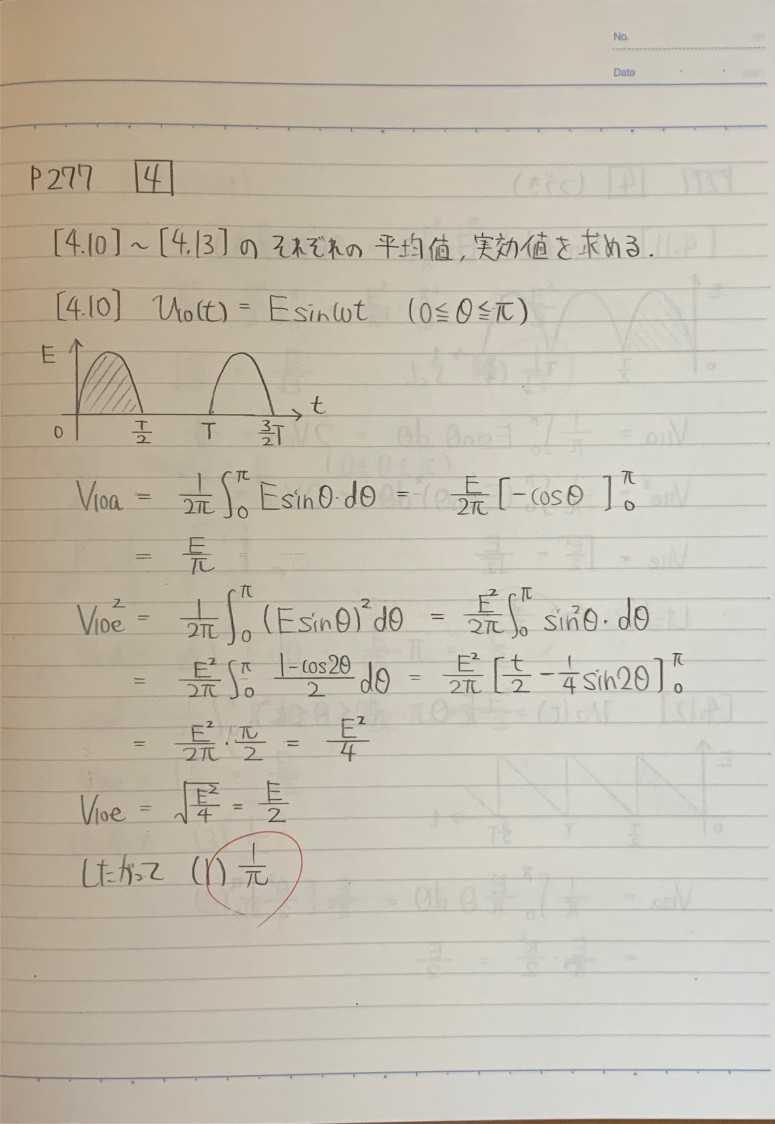 No.
Date
P277 4
[4.10]~[4.13]のそれぞれの平均値,実効値を求める.
[4.10] V₁₀(t) = E sinωt (0≦θ≦π)
E
0 T/2 T 3/2T t
V₁₀a = 1/2π ∫₀^π E sinθ・dθ = E/2π [-cosθ]₀^π
= E/π
V₁₀e² = 1/2π ∫₀^π (E sinθ)² dθ = E²/2π ∫₀^π sin²θ・dθ
= E²/2π ∫₀^π (1-cos2θ)/2 dθ = E²/2π [t/2 - 1/4 sin2θ]₀^π
= E²/2π・π/2 = E²/4
V₁₀e = √(E²/4) = E/2
したがって (1) 1/π